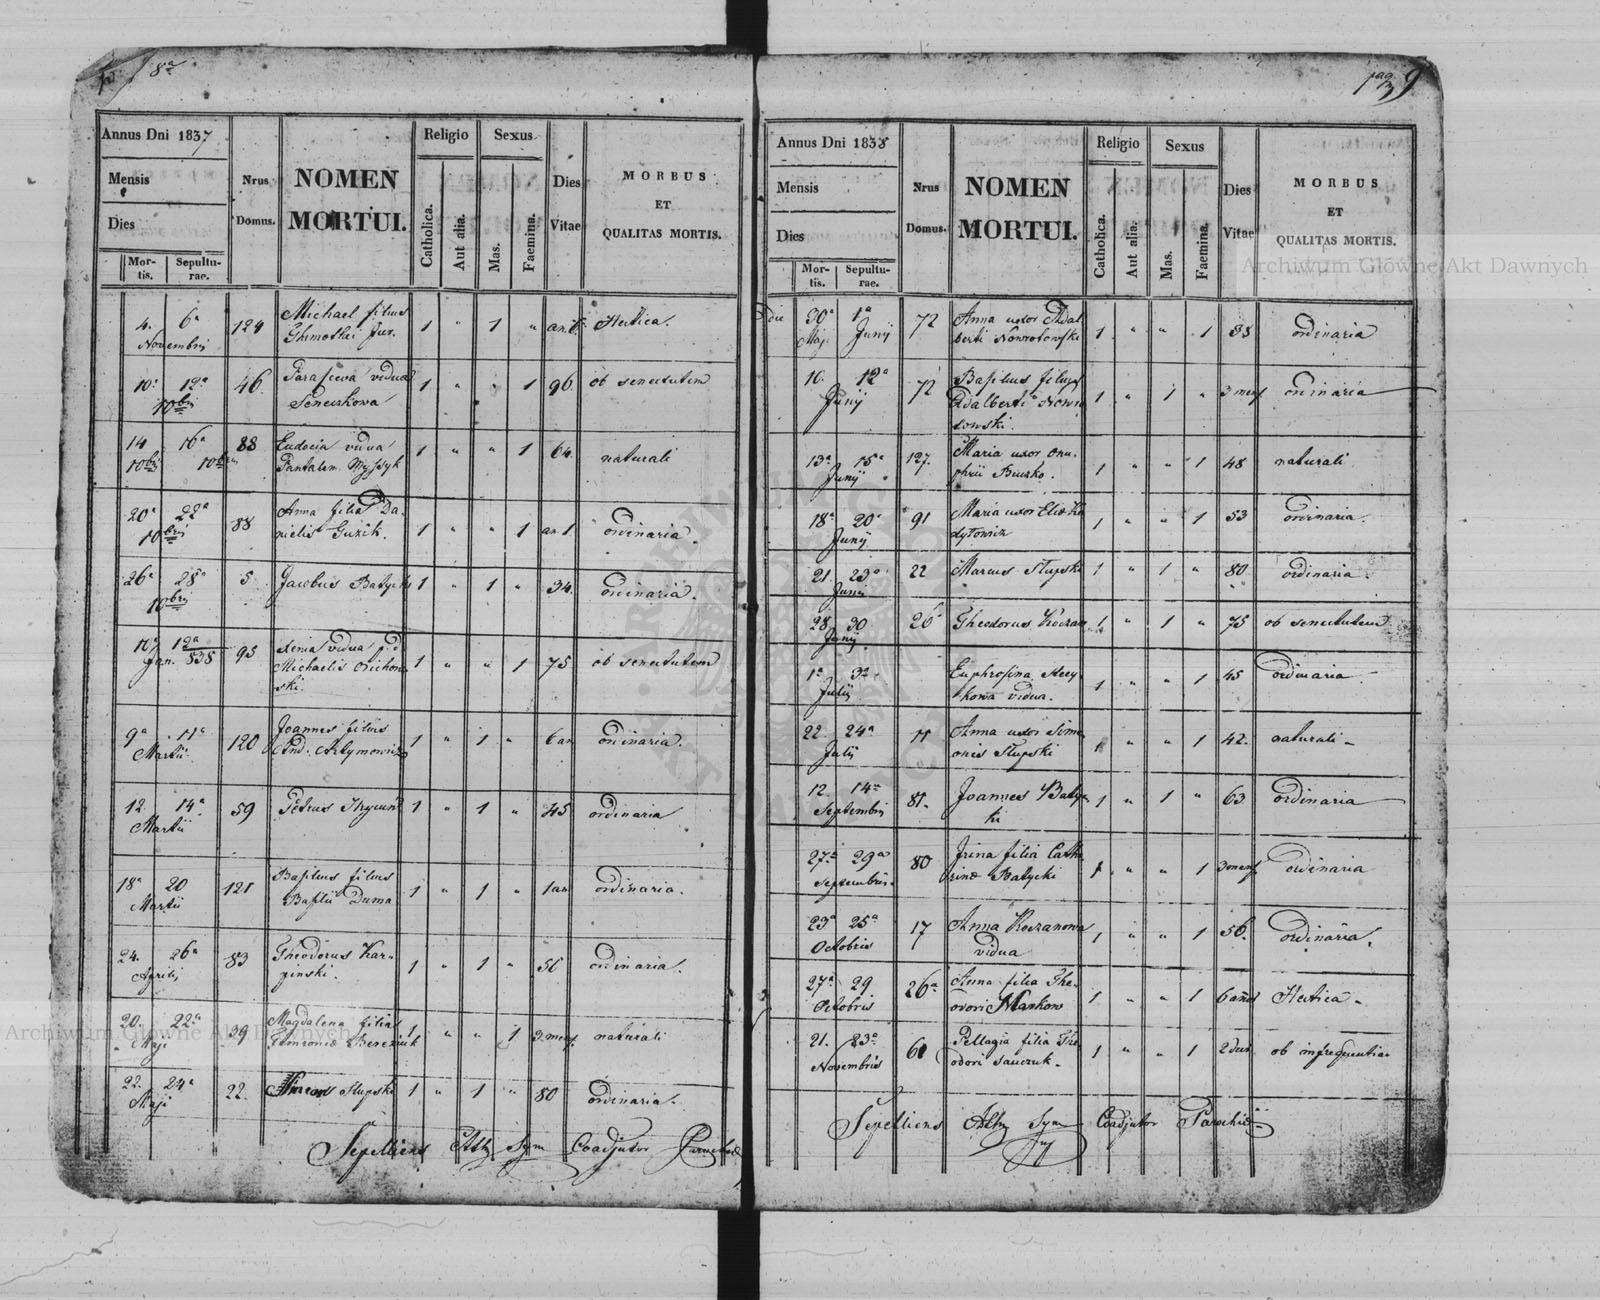 8va
Annus Dni 1837
Mensis
Dies
Mortis.
Sepulturae.
Nrus Domus.
NOMEN MORTUI.
Religio
Catholica.
Aut alia.
Sexus
Mas.
Faemina.
Dies Vitae
MORBUS
ET
QUALITAS MORTIS.
4. 6a 124 Michael filius 1 " 1 " an. Hectica.
Novembris
10a 12a 46 Parascewa vidua 1 " " 1 96 ob senectutem
10bris Seneczkowa
14 16a 88 Eudocia vidua 1 " " 1 64 naturali
10bris 10bris Pantalem.
20a 22a 88 Anna filia Da- 1 " " 1 an. 1 ordinaria.
10bris nielis Guzik.
26a 28a 5 Jacobus Batycki 1 " 1 " 34 ordinaria.
10bris
12a 95 Xenia vidua p.d. 1 " " 1 75 ob senectutem
Jan. 838 Michaelis Orichow-
ski.
9a 11a 120 Joannes filius 1 " 1 " 6 an ordinaria.
Martii And. Artymowicz
12 14a 59 Petrus 1 " 1 " 45 ordinaria
Martii
18a 20 121 Basilius filius 1 " 1 " 1 an ordinaria.
Martii Basilii Duma
24. 26a 83 Theodorus Kar- 1 " 1 " 56 ordinaria.
Aprilis pinski.
20. 22a 39 Magdalena filia 1 " " 1 3 mens naturali
Maji
22. 24a 22. Slupski 1 " 1 " 80 ordinaria.
Maji
Sepeliens Ath Sym Coadjutor Parochiae
pag 9
Annus Dni 1838
Mensis
Dies
Mortis.
Sepulturae.
Nrus Domus.
NOMEN MORTUI.
Religio
Catholica.
Aut alia.
Sexus
Mas.
Faemina.
Dies Vitae
MORBUS
ET
QUALITAS MORTIS.
die 30a 1a 72 Anna uxor Adal- 1 " " 1 38 ordinaria
Maji Junij berti Nowrotowski
10. 12a 72 Basilius filius 1 " 1 " 3 mens ordinaria
Junij Adalberti Nowro
towski.
13a 15a 127. Maria uxor Onu- 1 " " 1 48 naturali
Junij phrii Buczko.
18a 20a 91 Maria uxor Eliae Ka 1 " " 1 53 ordinaria.
Junij dylowicz
21. 23a 22 Marcus Slupski 1 " 1 " 80 ordinaria.
Junij
28 30 26 Theodorus Koczan 1 " 1 " 75 ob senectutem
Junij
1a 3a Euphrosina 1 " " 1 45 ordinaria
Julij kowa vidua.
22. 24a 11 Anna uxor Sime- 1 " " 1 42. naturali
Julij onis Slupski
12. 14a 81. Joannes Batyc 1 " 1 " 63 ordinaria
Septembris ki
27a 29a 80 Irina filia Catha 1 " " 1 3 mens ordinaria
Septembris rinae Batycki
23a 25a 17 Anna Koczanowa 1 " " 1 56. ordinaria.
Octobris vidua
27a 29 26a Anna filia The- 1 " " 1 6 annos Hectica
Octobris odori Mankow
21. 23a 61 Pellagia filia The 1 " " 1 2 dies
Novembris odori Sawczuk.
Sepeliens Ath Sym Coadjutor Parochiae
Archiwum Główne Akt Dawnych
Archiwum Główne Akt Dawnych